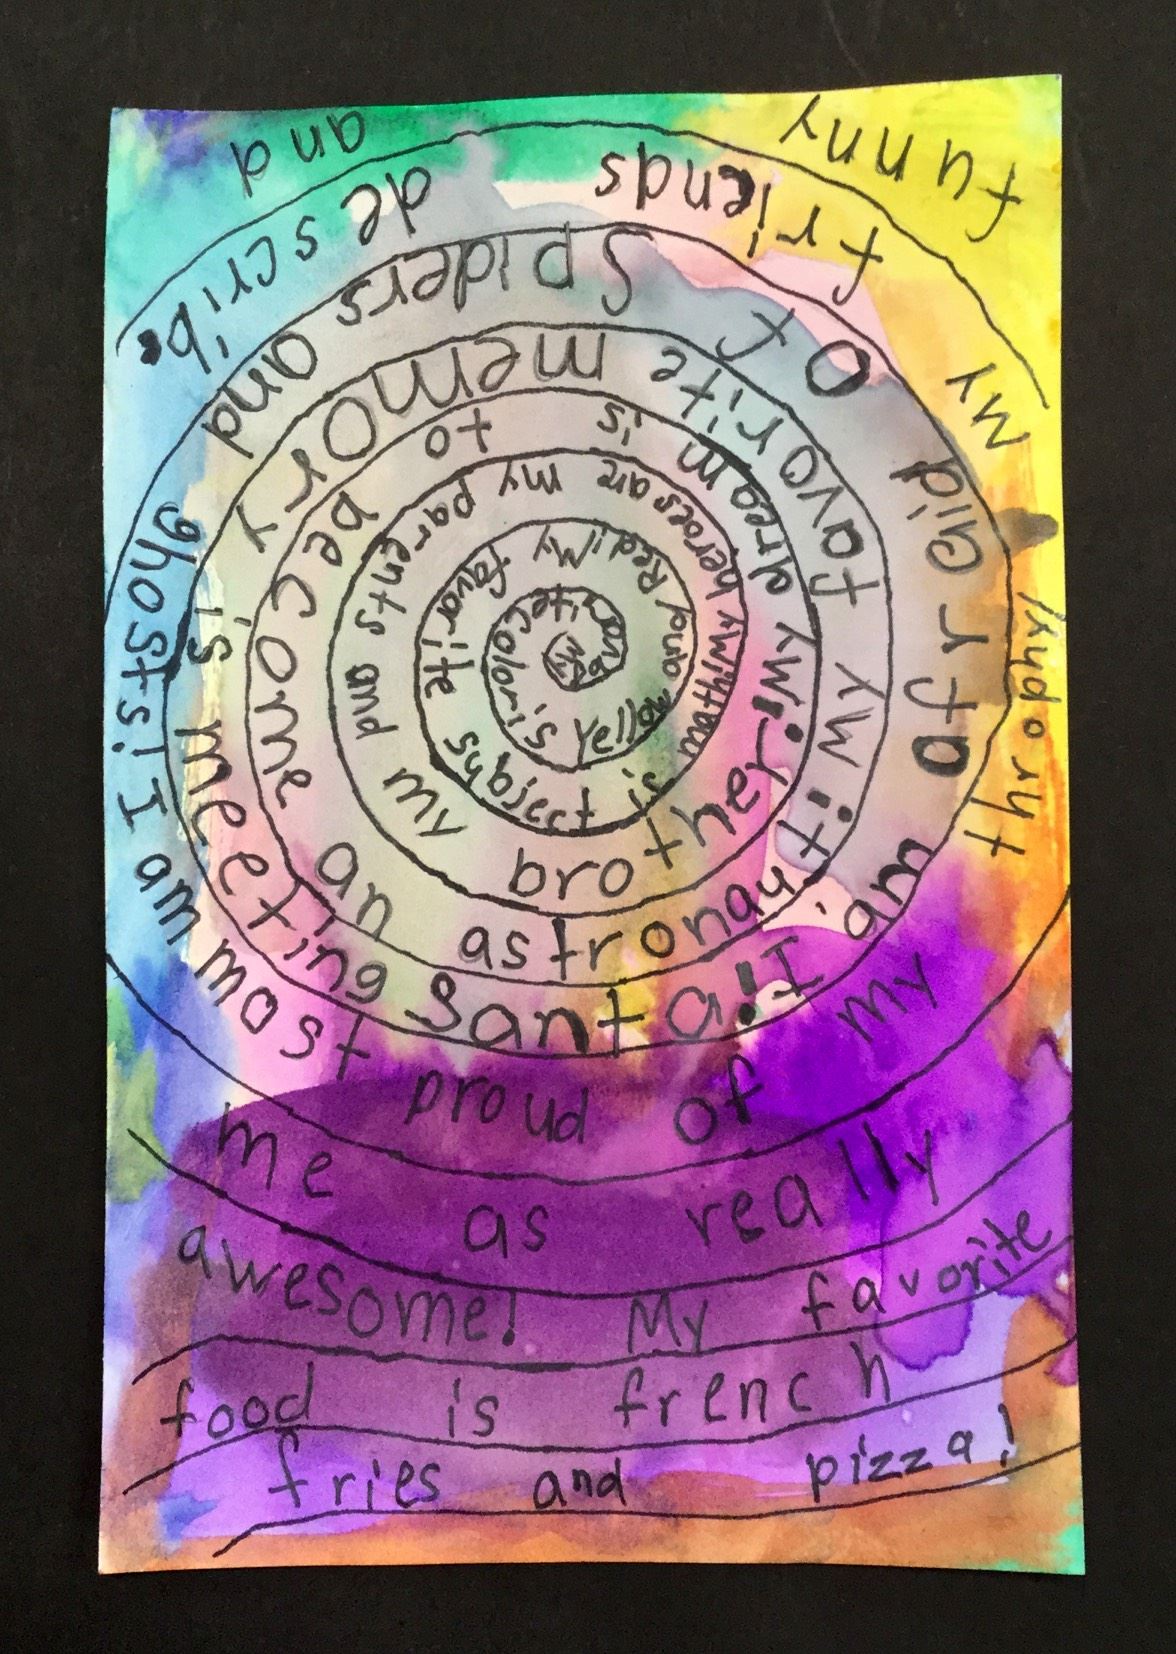 My favorite color is Yellow and Red!
My favorite subject is math!
My heroes are my parents and my brother!
My dream is to become an astronaut!
My favorite memory is meeting Santa!
I'am afraid of Spiders and ghosts!
I am most proud of my throphy!
My friends describ. me as really funny and awesome!
My favorite food is french fries and pizza!